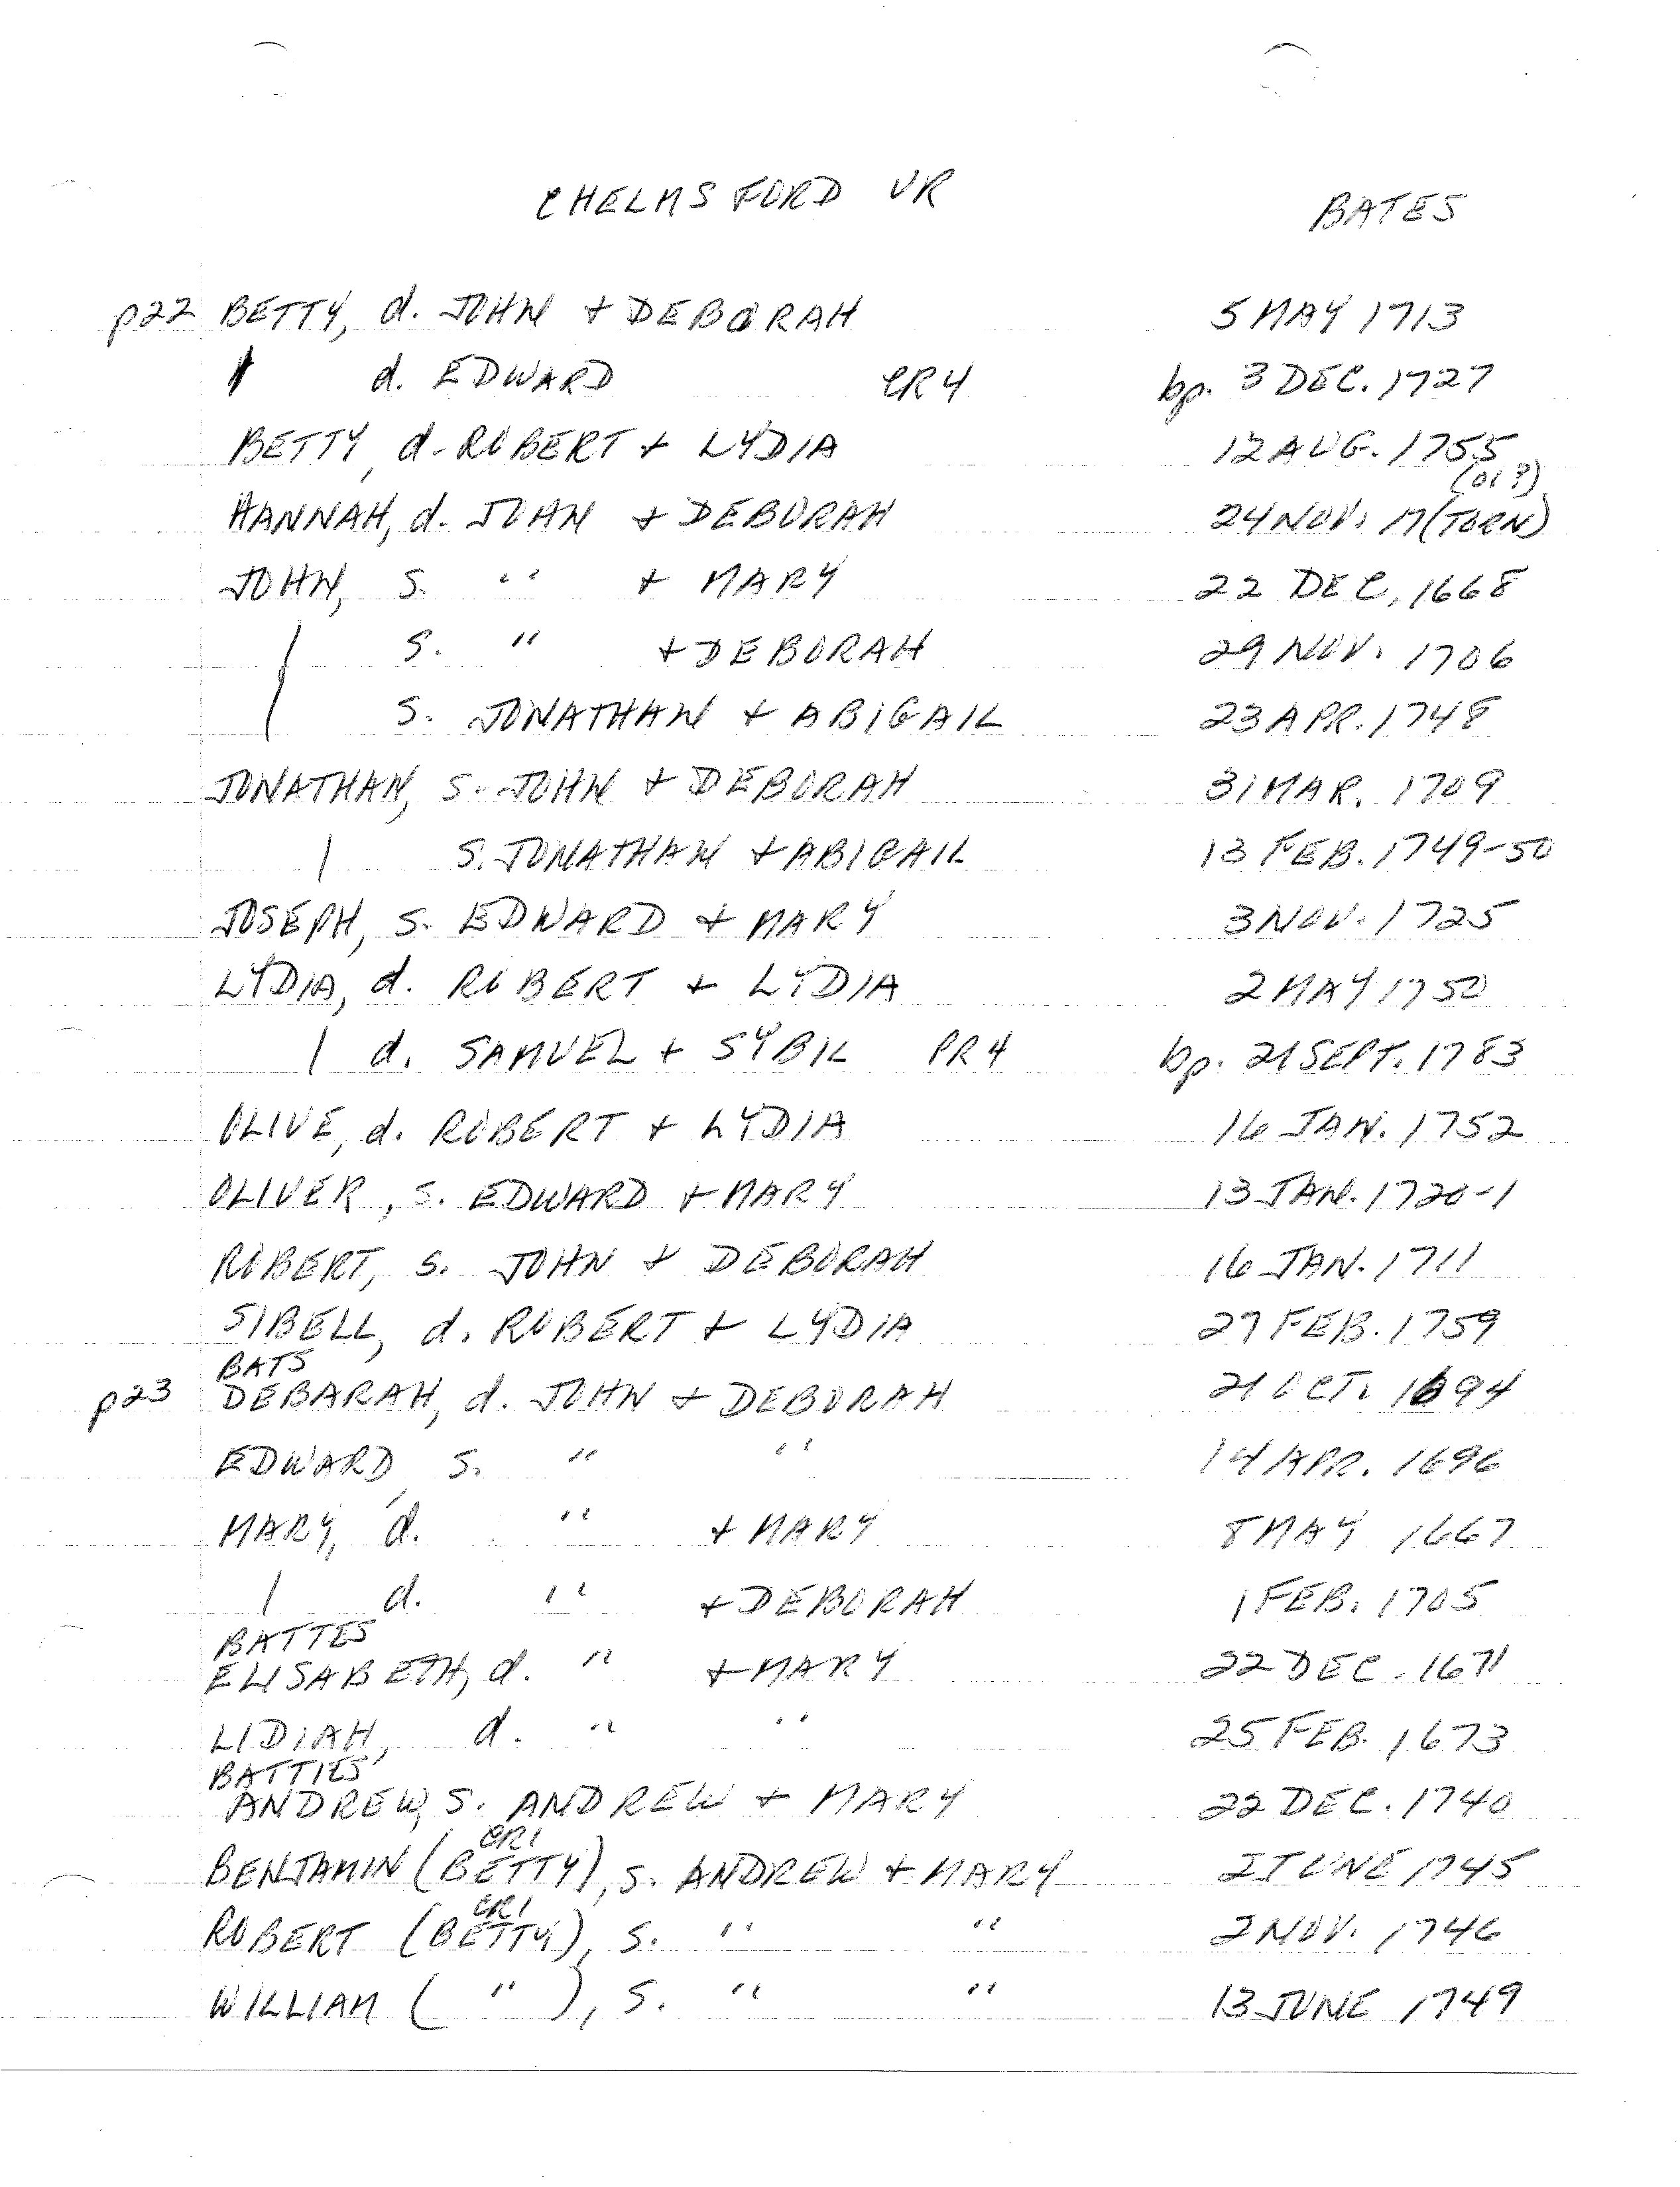 CHELMSFORD VR BATES
p22 BETTY, d. JOHN + DEBORAH 5 MAY 1713
d. EDWARD CR4 bp. 3 DEC. 1727
BETTY, d. ROBERT + LYDIA 12 AUG. 1755
(01?)
HANNAH, d. JOHN + DEBORAH 24 NOV. 17(TORN)
JOHN, S. " + MARY 22 DEC, 1668
S. " + DEBORAH 29 NOV. 1706
S. JONATHAN + ABIGAIL 23 APR. 1748
JONATHAN, S. JOHN + DEBORAH 31 MAR. 1709
S. JONATHAN + ABIGAIL 13 FEB. 1749-50
JOSEPH, S. EDWARD + MARY 3 NOV. 1725
LYDIA, d. ROBERT + LYDIA 2 MAY 1750
d. SAMUEL + SYBIL PR4 bp. 21 SEPT. 1783
OLIVE, d. ROBERT + LYDIA 16 JAN. 1752
OLIVER, S. EDWARD + MARY 13 JAN. 1720-1
ROBERT, S. JOHN + DEBORAH 16 JAN. 1711
SIBELL, d. ROBERT + LYDIA 27 FEB. 1759
BATS
p23 DEBARAH, d. JOHN + DEBORAH 21 OCT. 1694
EDWARD, S. " " 14 APR. 1696
MARY, d. " + MARY 8 MAY 1667
d. " + DEBORAH 1 FEB. 1705
BATTES
ELISABETH, d. " + MARY 22 DEC. 1671
LIDIAH, d. " " 25 FEB. 1673
BATTIES
ANDREW, S. ANDREW + MARY 22 DEC. 1740
CR1
BENJAMIN (BETTY), S. ANDREW + MARY 2 JUNE 1745
CR1
ROBERT (BETTY), S. " " 2 NOV. 1746
WILLIAM ( " ), S. " " 13 JUNE 1749